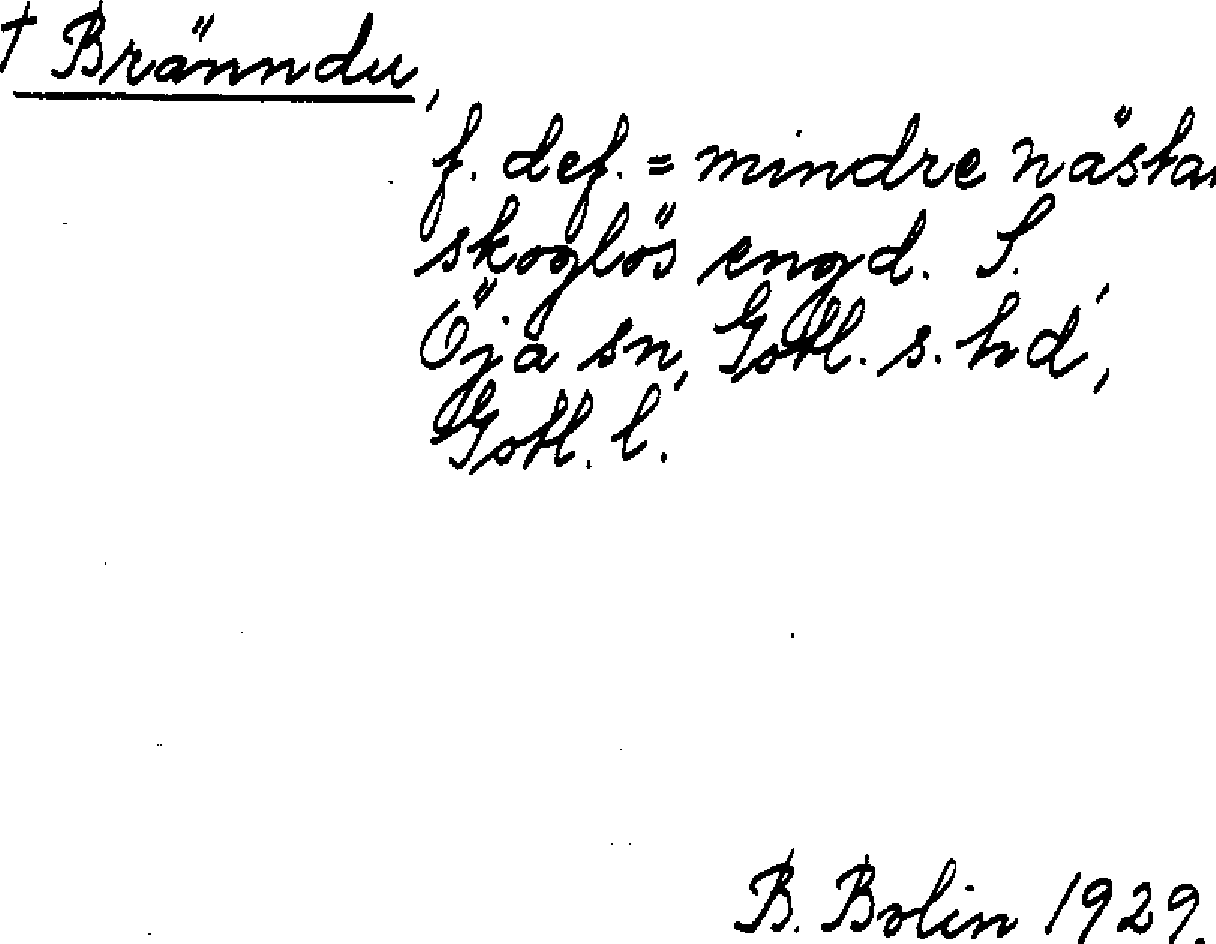 † Bränndu,
f. def. = mindre nästan
skoglös engd. S.
Öja sn, Gotl. s. hd,
Gotl. l.
B. Bolin 1929.